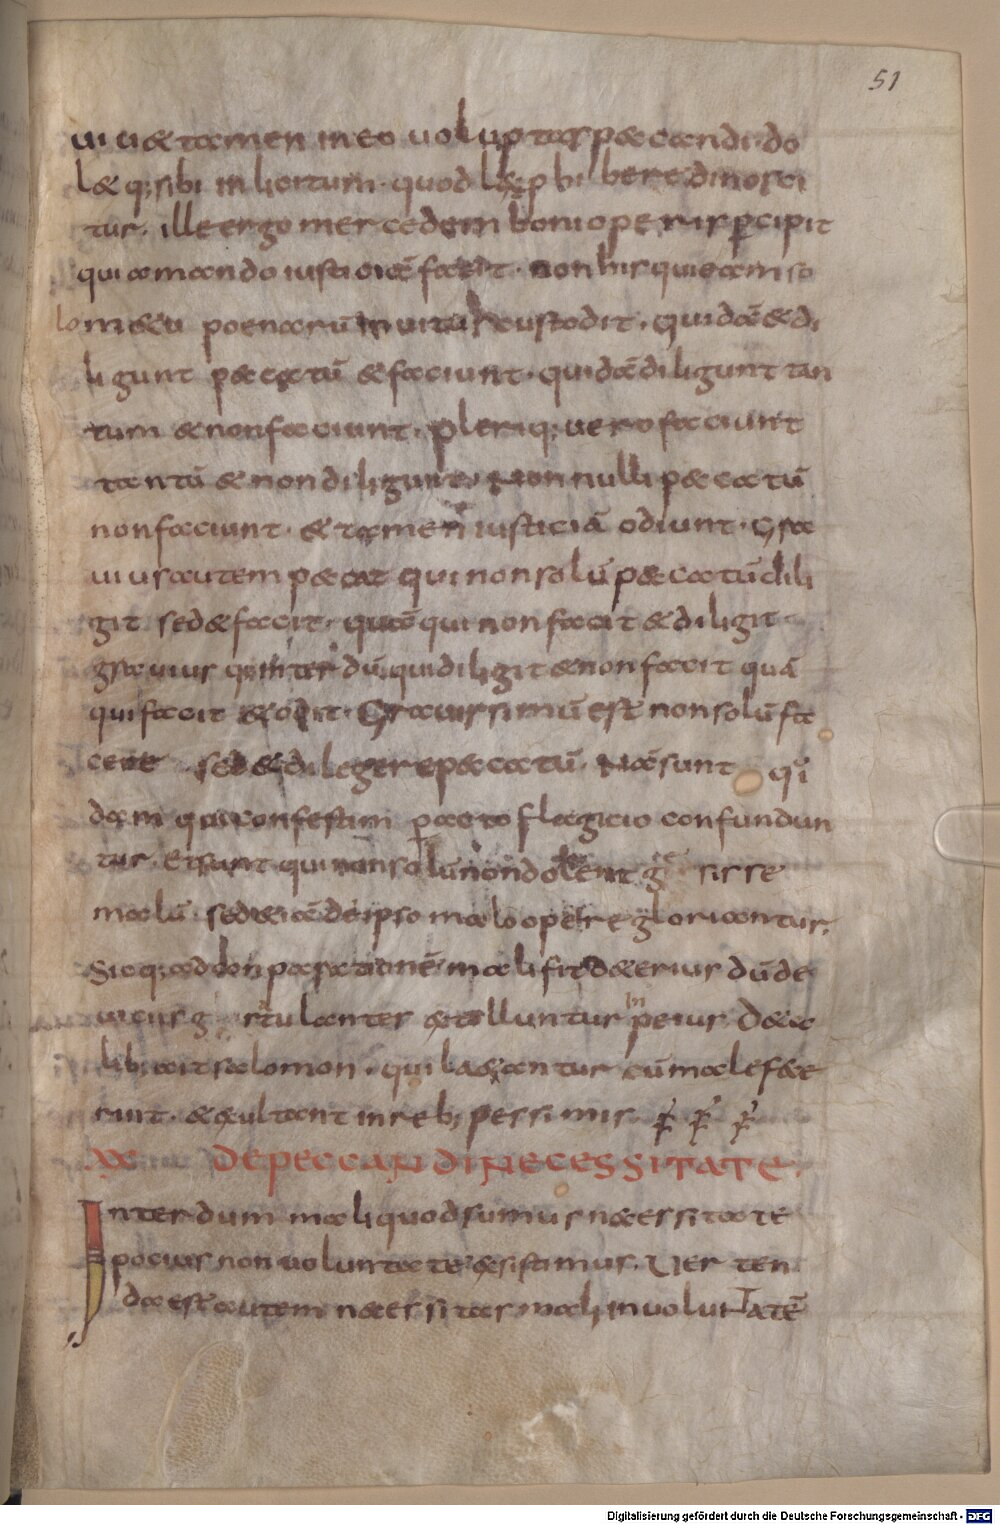 51
ui uetamen in eo uoluptas peccandi do
let q; sibi in licitum. quod libere dinosci
tur. ille ergo mercedem boni operis percipit
qui amando iusticiā facit. non his qui eam so
lo metu poenarū inuitus custodit. quidā & di
ligunt peccatū & faciunt. quidā diligunt tan
tum & non faciunt. pleriq; uero faciunt
tantū & non diligunt. Non nulli peccatū
non faciunt. & tamen iusticiā odiunt. Gra
uius autem peccat qui non solū peccatū dili
git sed & facit. quā qui non facit & diligit
grauius q; interdū qui diligit & non facit quā
qui facit & odit. Grauissimū est non solū fa
cere sed & diligere peccatū. Nā sunt qui
dam qui confestim peracto flagicio confundun
tur. Et sunt qui non solū non dolent gessisse
malū. sed etiā de ipso malo opere gloriantur.
Sicq; ad conparationē mali fit deterius dū de
uiciis gratulantes extolluntur in peius. De ta
lib; ait salomon. qui laetantur cū male fece
rint. & exultant in reb; pessimis
XX DE PECCANDI NECESSITATE
Interdum mali quod sumus necessitate
pocius non uoluntate existimus. Uerten
da est autem necessitas mali in uoluntatē
Digitalisierung gefördert durch die Deutsche Forschungsgemeinschaft - DFG